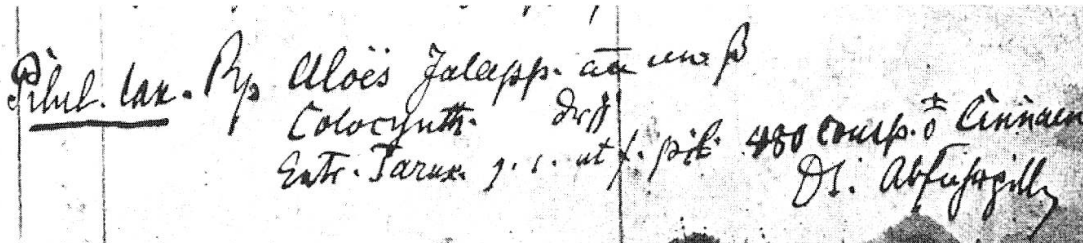 Pilul. lax. Rp Aloës Jalapp. aa unc β
Colocynth. Dr j
Extr. Tarax. q. s. ut f. pil. 480 consp. c Cinnam
DS. Abführpillen